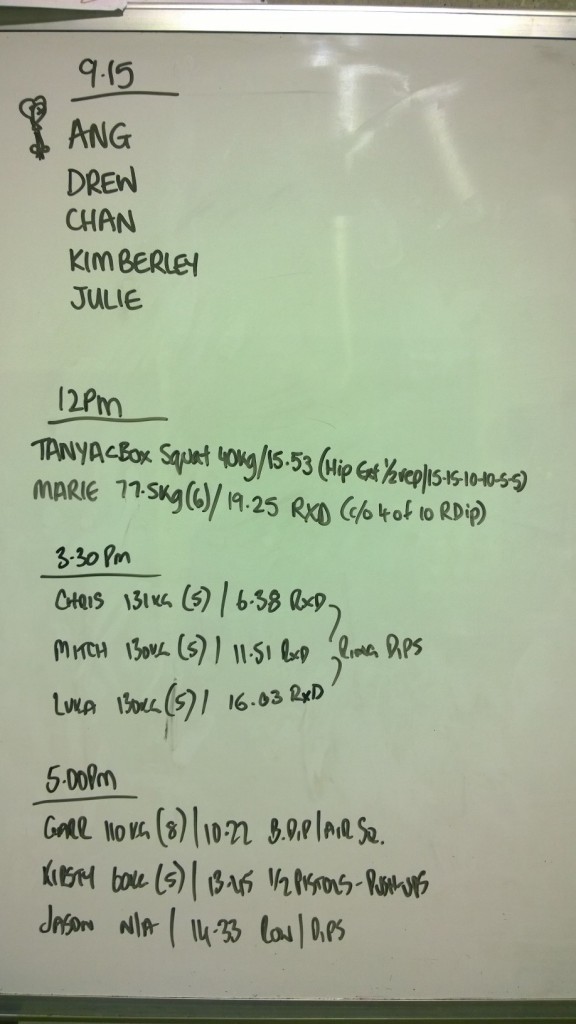 9.15
ANG
DREW
CHAN
KIMBERLEY
JULIE
12pm
TANYA Box Squat 40kg/15.53 (Hip Ext 1/2 rep/15-15-10-10-5-5)
MARIE 77.5kg (6)/19.25 RXD (c/o 4 of 10 RDip)
3.30pm
CHRIS 131KG (5) | 6.38 RxD
MITCH 130KG (5) | 11.51 RxD Ring Dips
LUKA 130KG (5) | 16.03 RxD
5.00pm
110KG (8) | 10.22 B.DIP | AIR SQ.
KIRSTY 60KG (5) | 13.45 1/2 PISTOLS - PUSHUPS
JASON N/A | 14.33 Row | DIPS